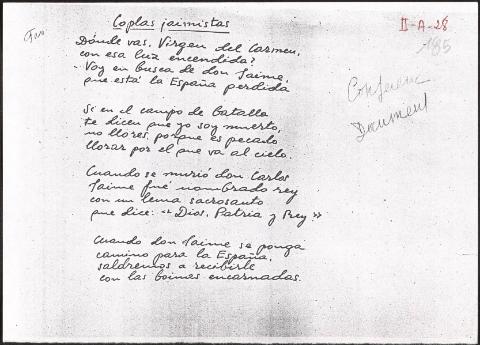 Coplas jaimistas
II-A-28
185
Dónde vas, Virgen del Carmen,
con esa luz encendida?
- Voy en busca de don Jaime,
que está la España perdida
Si en el campo de batalla
te dicen que yo soy muerto,
no llores, porque es pecado
llorar por el que va al cielo.
Cuando se murió don Carlos
Jaime fué nombrado rey
con un lema sacrosanto
que dice: "Dios, Patria y Rey"
Cuando don Jaime se ponga
camino para la España,
saldremos a recibirle
con las boinas encarnadas.
Document